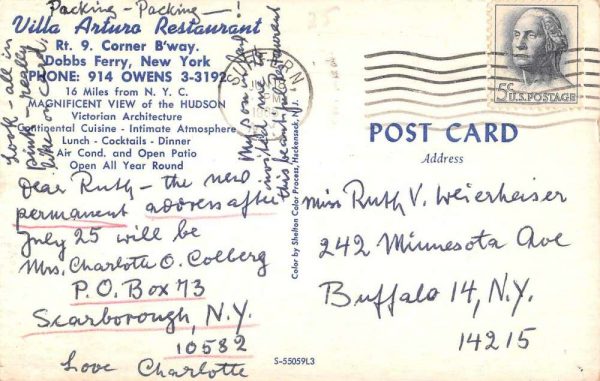 Packing - Packing - !
Villa Arturo Restaurant
Rt. 9. Corner B'way.
Dobbs Ferry, New York
PHONE: 914 OWENS 3-3192
16 Miles from N. Y. C.
MAGNIFICENT VIEW of the HUDSON
Victorian Architecture
Continental Cuisine - Intimate Atmosphere
Lunch - Cocktails - Dinner
Air Cond. and Open Patio
Open All Year Round
Look - all in
pink - really
like on card.
My son in law
invited me to
this beautiful restaurant
Dear Ruth - the new
permanent address after
July 25 will be
Mrs. Charlotte O. Colberg
P.O. Box 73
Scarborough, N.Y.
10582
Love Charlotte
Color by Shelton Color Process, Hackensack, N.J.
S-55059L3
5¢ U.S. POSTAGE
POST CARD
Address
Miss Ruth V. Weierheiser
242 Minnesota Ave
Buffalo 14, N.Y.
14215